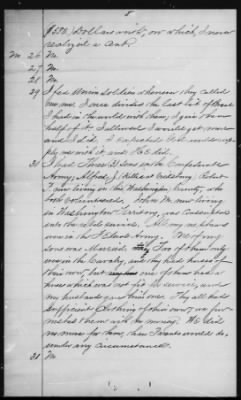 5
$500. Dollars worth, on which, I never
realized a Cent.
No 26 No.
27 No.
28 No.
29 I fed Union Soldiers whenever they called
on me. I once divided the last bit of Bread
I had in the world with them, I gave them
half of it. I allowed I would get more
and I did. I expected God would sup-
ply me with it, and He did.
30 I had Three 3 sons in the Confederate
Army, Alfred J. Killed at Petersburg. Robert
T. now living in this Washington County, who
both Volunteered. John M. now living
in Washington Territory, was Conscripted
into the Rebel service. All my relatives
were in the Federal Army. None of my
sons was Married. Two of them only
were in the Cavalry, and they had horses of
their own, but one of them had a
horse which was not fit for service, and
my husband gave him one. They all had
sufficient Clothing of their own; we fur-
nished them with no money. We did
no more for them, than Parents would do,
under any circumstances.
31 No